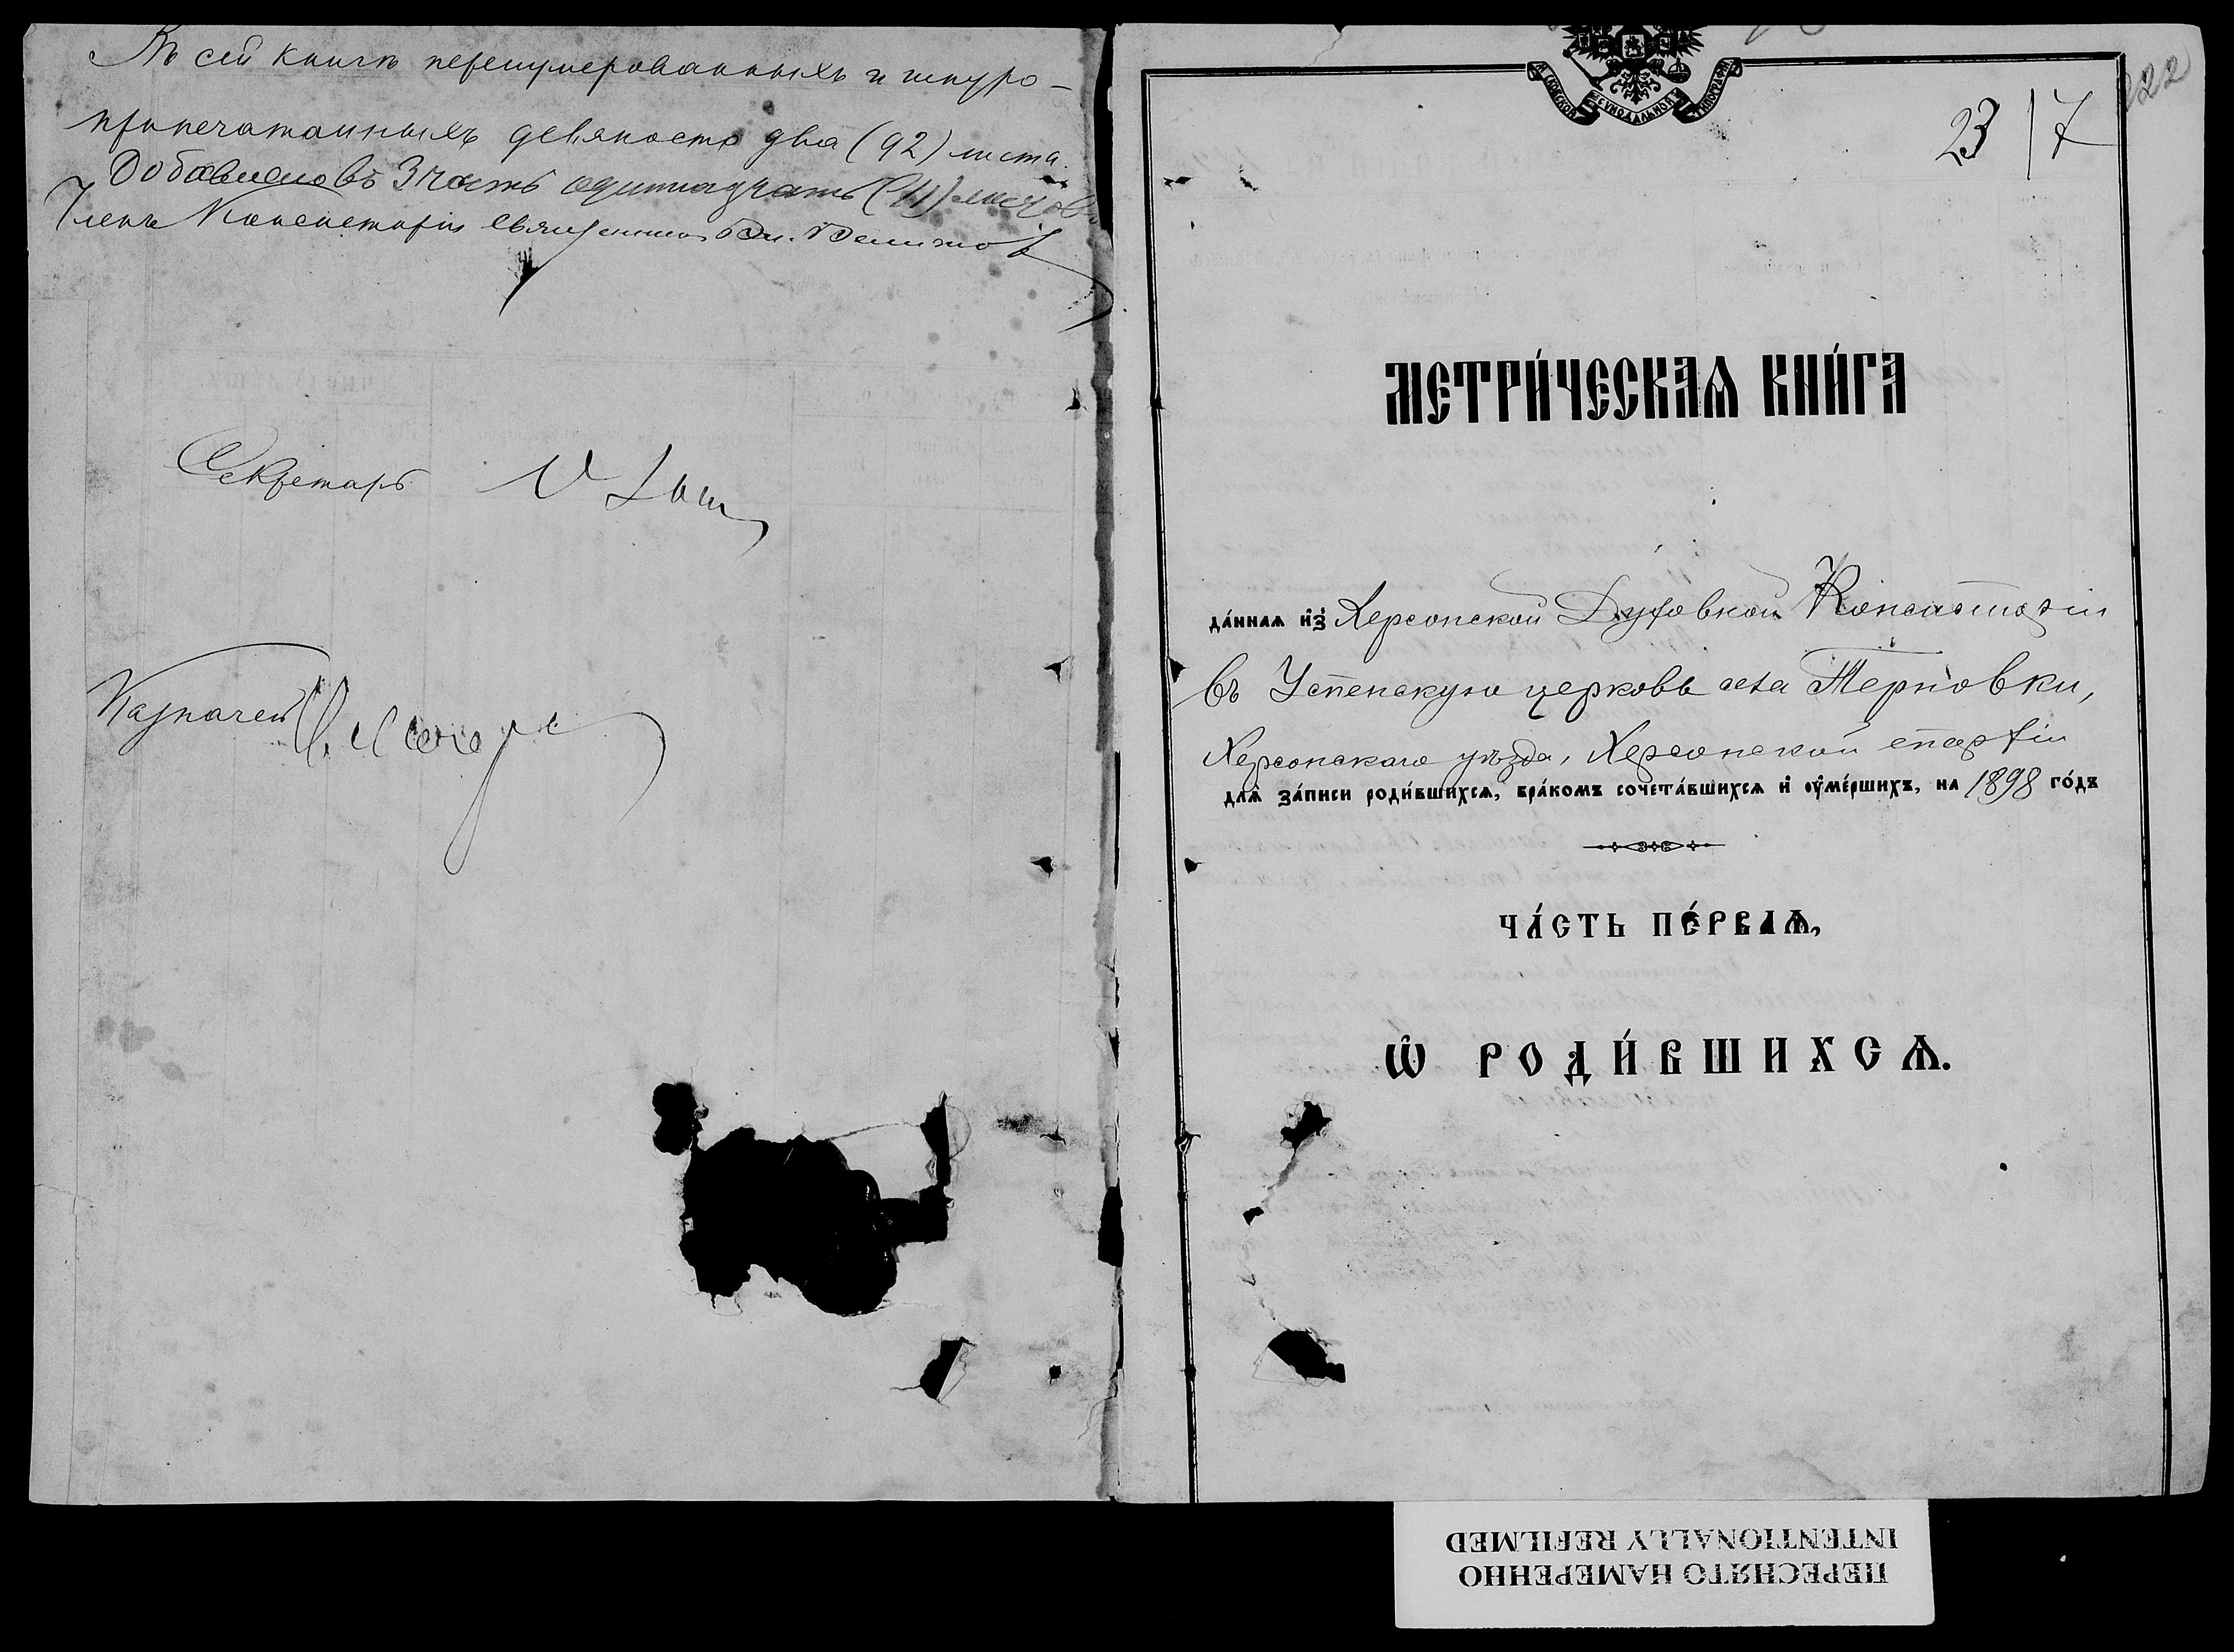 Въ сей книгѣ перенумерованныхъ и шнуро-
припечатанныхъ девяносто два (92) листа.
Добавлено въ 3 часть одиннадцать (11) листовъ
Членъ Консисторіи Священникъ
Секретарь
Казначей
222
23 | 7
МОСКОВСКОЙ СѴНОДАЛЬНОЙ ТИПОГРАФІИ
МЕТРИ́ЧЕСКАѦ КНИ́ГА
да́ннаѧ и҆з̾ Херсонской Духовной Консисторіи
въ Успенскую церковь села Терновки,
Херсонскаго уѣзда, Херсонской епархіи
длѧ̀ за́писи роди́вшихсѧ, бра́комъ сочета́вшихсѧ и҆ ᲂу҆ме́ршихъ, на 1898 го́дъ
ЧА́СТЬ ПЕ́РВАѦ,
Ѡ҆ РОДИ́ВШИХСѦ.
ПЕРЕСНЯТО НАМЕРЕННО
INTENTIONALLY REFILMED